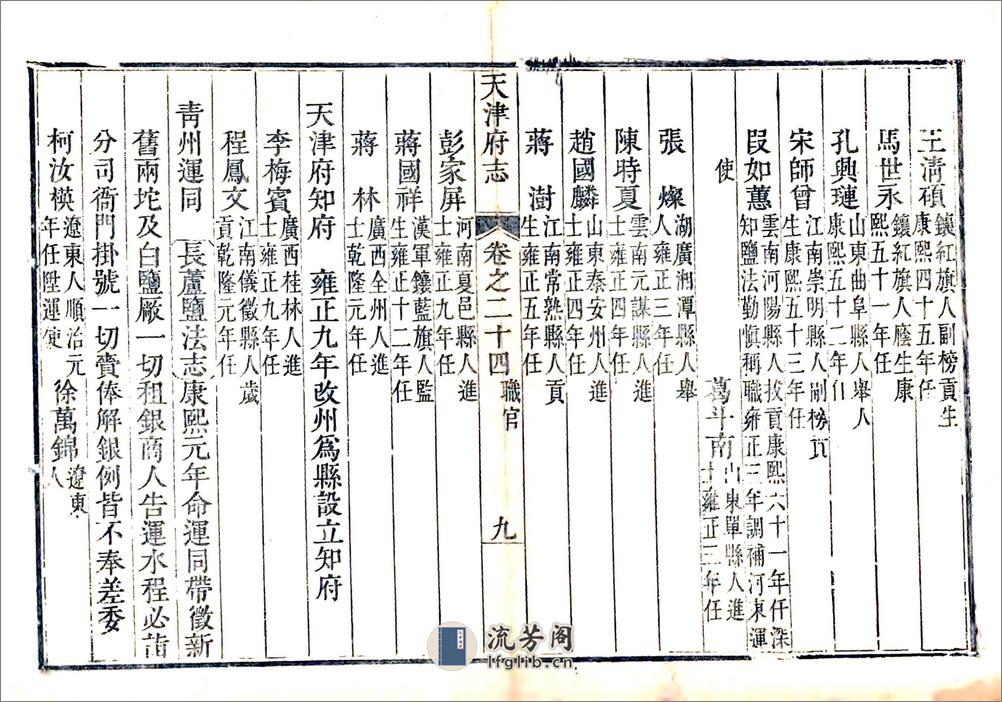 王淸碩鑲紅旗人副榜貢生康熙四十五年任
馬世永鑲紅旗人廕生康熙五十一年任
孔興璉山東曲阜縣人舉人康熙五十二年任
宋師曾江南崇明縣人副榜貢生康熙五十三年任
段如蕙雲南河陽縣人拔貢康熙六十一年任深知鹽法勤愼稱職雍正三年調補河東運
使 葛斗南山東單縣人進士雍正三年任
張燦湖廣湘潭縣人舉人雍正三年任
陳時夏雲南元謀縣人進士雍正四年任
趙國麟山東泰安州人進士雍正四年任
蔣澍江南常熟縣人貢生雍正五年任
天津府志 卷之二十四 職官 九
彭家屏河南夏邑縣人進士雍正九年任
蔣國祥漢軍鑲藍旗人監生雍正十二年任
蔣林廣西全州人進士乾隆元年任
天津府知府 雍正九年改州爲縣設立知府
李梅賓廣西桂林人進士雍正九年任
程鳳文江南儀徵縣人歲貢乾隆元年任
靑州運同 長蘆鹽法志康熙元年命運同帶徵新
舊兩坨及白鹽厰一切租銀商人告運水程必詣
分司衙門掛號一切賫俸解銀例皆不奉差委
柯汝楧遼東人順治元年任陞運使 徐萬錦遼東人
流芳阁
lfglib.cn